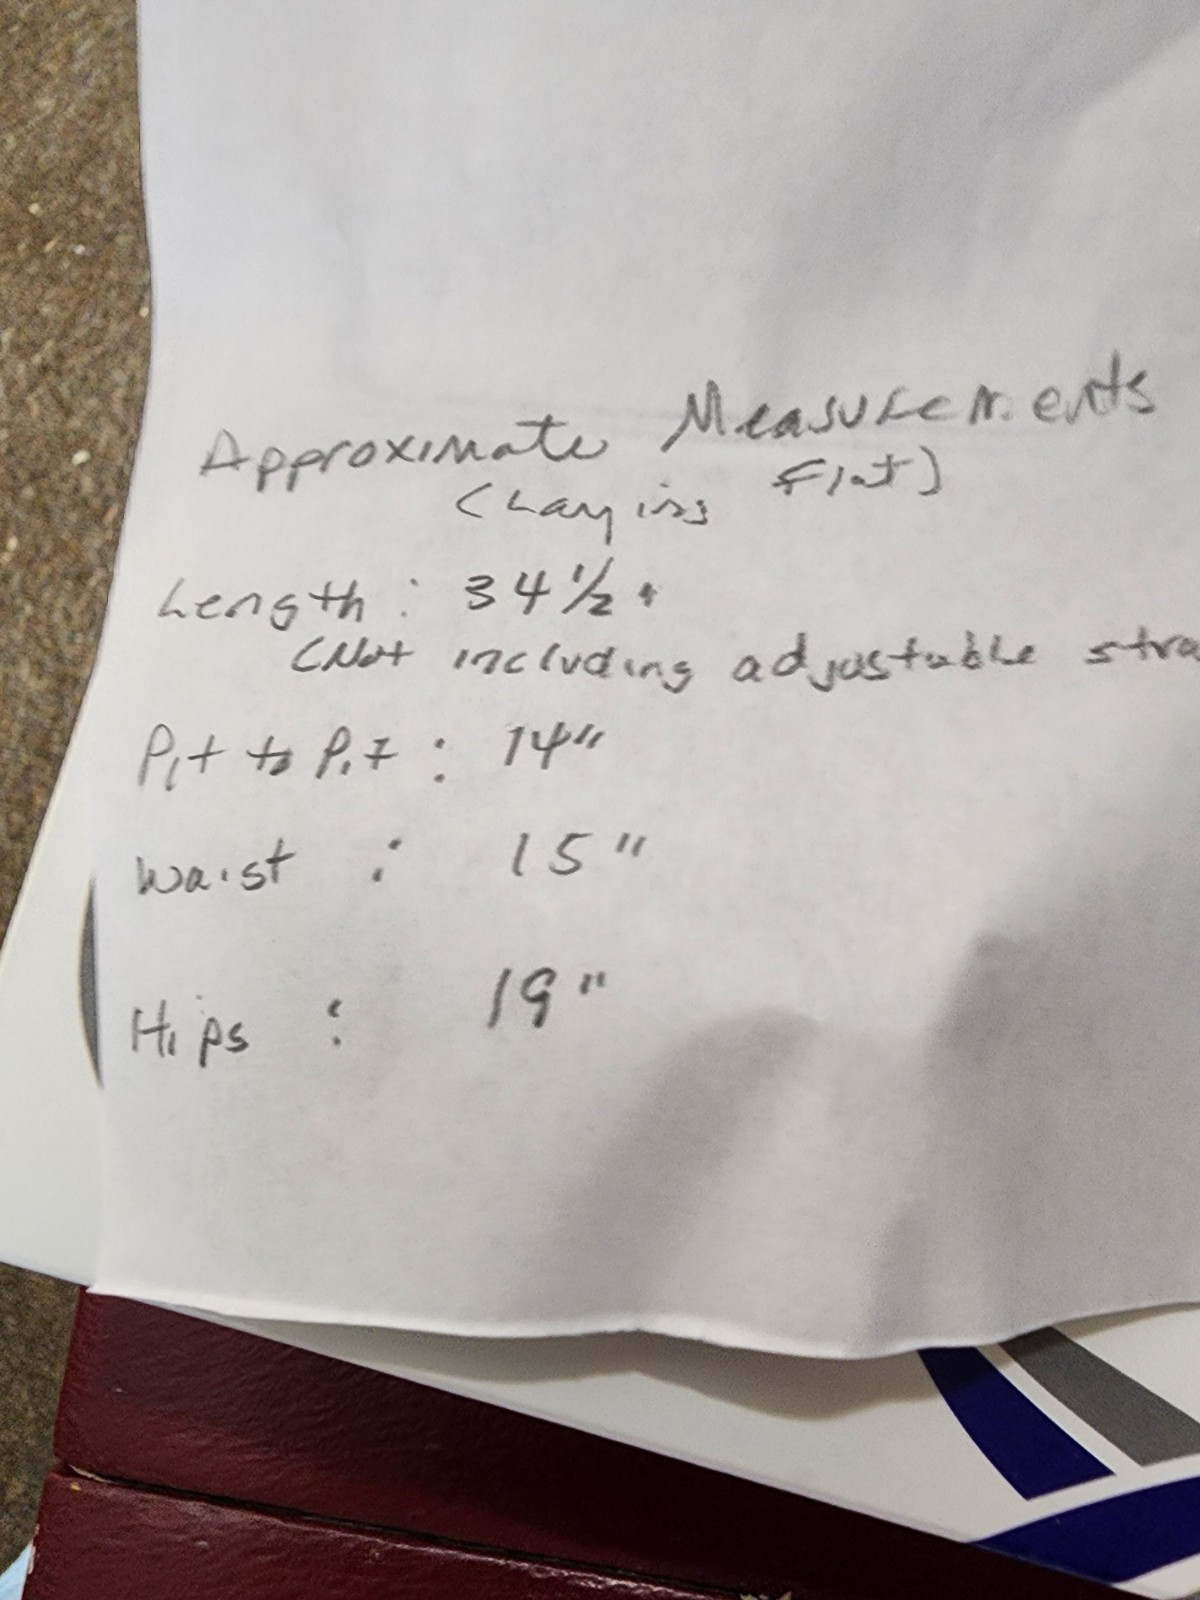 Approximate Measurements
(Laying Flat)
Length: 34 1/2"
(Not including adjustable stra
Pit to Pit: 14"
Waist : 15"
Hips : 19"